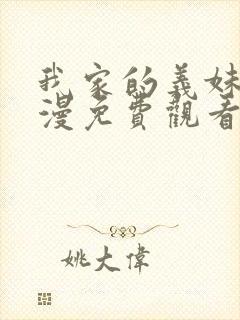 我家的義妹
漫免費觀看
姚大偉